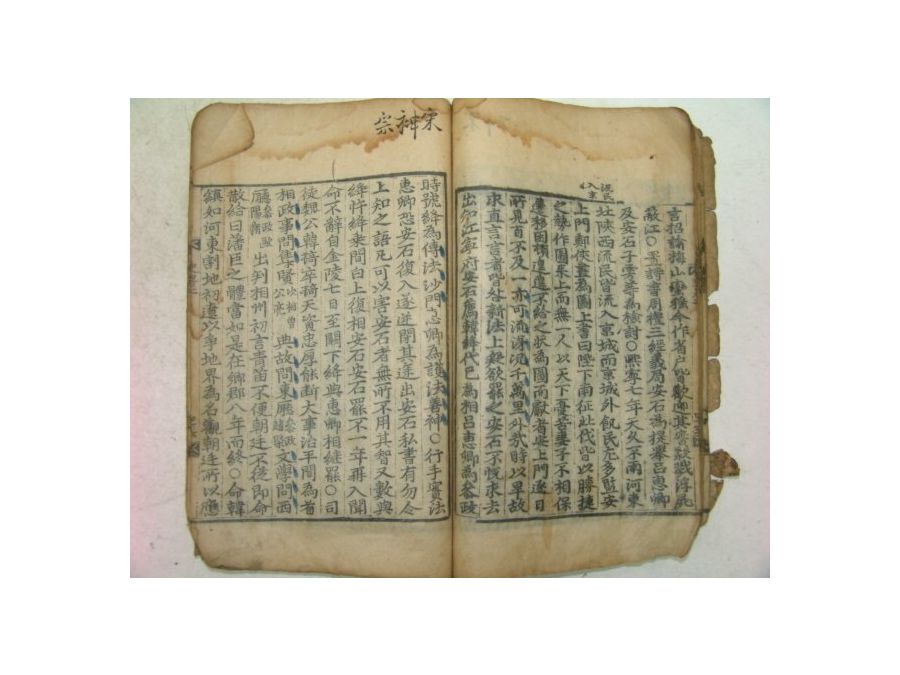 言招諭梅山蠻猺令作省戶皆歡迎其實殺戮浮飛
蔽江○置詩書周禮三經義局安石爲提擧呂惠卿
及安石子雱等爲檢討○熙寧七年天久不雨河東
北陜西流民皆流入京城而京城外飢民尤多監安
流民入京
上門鄭俠畫爲圖上書曰陛下南征北伐皆以勝捷
之勢作圖來上而無一人以天下憂苦妻子不相保
遷移困頓遑遑不給之狀爲圖而獻者安上門逐日
所見百不及一亦可流涕況千萬里外哉時以旱故
求直言言者皆咎新法上疑欲罷之安石不悅求去
出知江寧府安石薦韓絳代己爲相呂惠卿爲參政
宋神宗
時號絳爲傳法沙門惠卿爲護法善神○行手實法
惠卿恐安石復入遂逆閉其途出安石私書有勿令
上知之語凡可以害安石者無所不用其智又數與
絳忤絳乘間白上復相安石安石罷不一年再入聞
命不辭自金陵七日至闕下絳與惠卿相繼罷○司
徒魏公韓琦卒琦天資忠厚能斷大事治平間爲首
相政事問集賢次相曾公亮典故問東廳參政趙槩文學問西
廳參政歐陽脩出判相州初言靑苗不便朝廷不從卽命
散給曰藩臣之體當如是在鄕郡八年而終○命韓
縝如河東割地初遼以爭地界爲名觀朝廷所以應